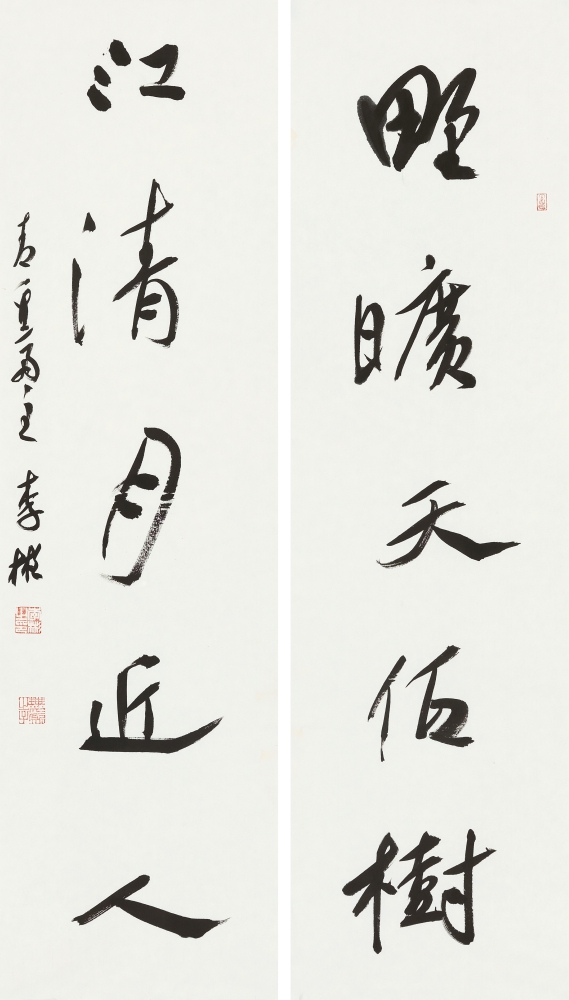 野曠天低樹
江清月近人
主 李